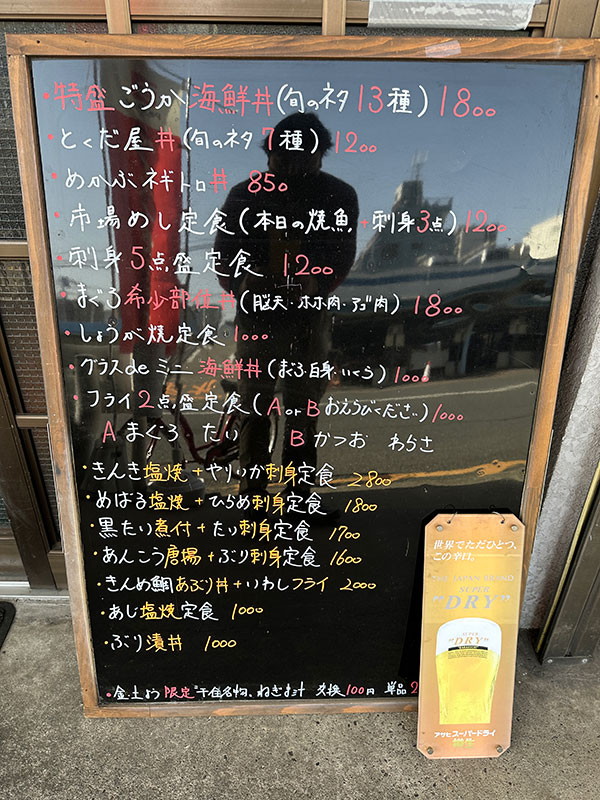 ・特盛ごうか海鮮丼(旬のネタ13種)1800
・とくだ屋丼(旬のネタ7種)1200
・めかぶネギトロ丼 850
・市場めし定食(本日の焼魚+刺身3点)1200
・刺身5点盛定食 1200
・まぐろ希少部位丼(脳天・ホホ肉・アゴ肉)1800
・しょうが焼定食 1000
・グラスdeミニ海鮮丼(まぐろ白身いくら)1000
・フライ2点盛定食(AorBおえらびください)1000
A まぐろ たい B かつお わらさ
・きんき塩焼+やりいか刺身定食 2800
・めばる塩焼+ひらめ刺身定食 1800
・黒たい煮付+たい刺身定食 1700
・あんこう唐揚+ぶり刺身定食 1600
・きんめ鯛あぶり丼+いわしフライ 2000
・あじ塩焼定食 1000
・ぶり漬丼 1000
・金土よう限定"千住名物、ねぎま汁 交換100円 単品2
世界でただひとつ、
この辛口。
THE JAPAN BRAND
SUPER
"DRY"
SUPER
"DRY"
アサヒスーパードライ